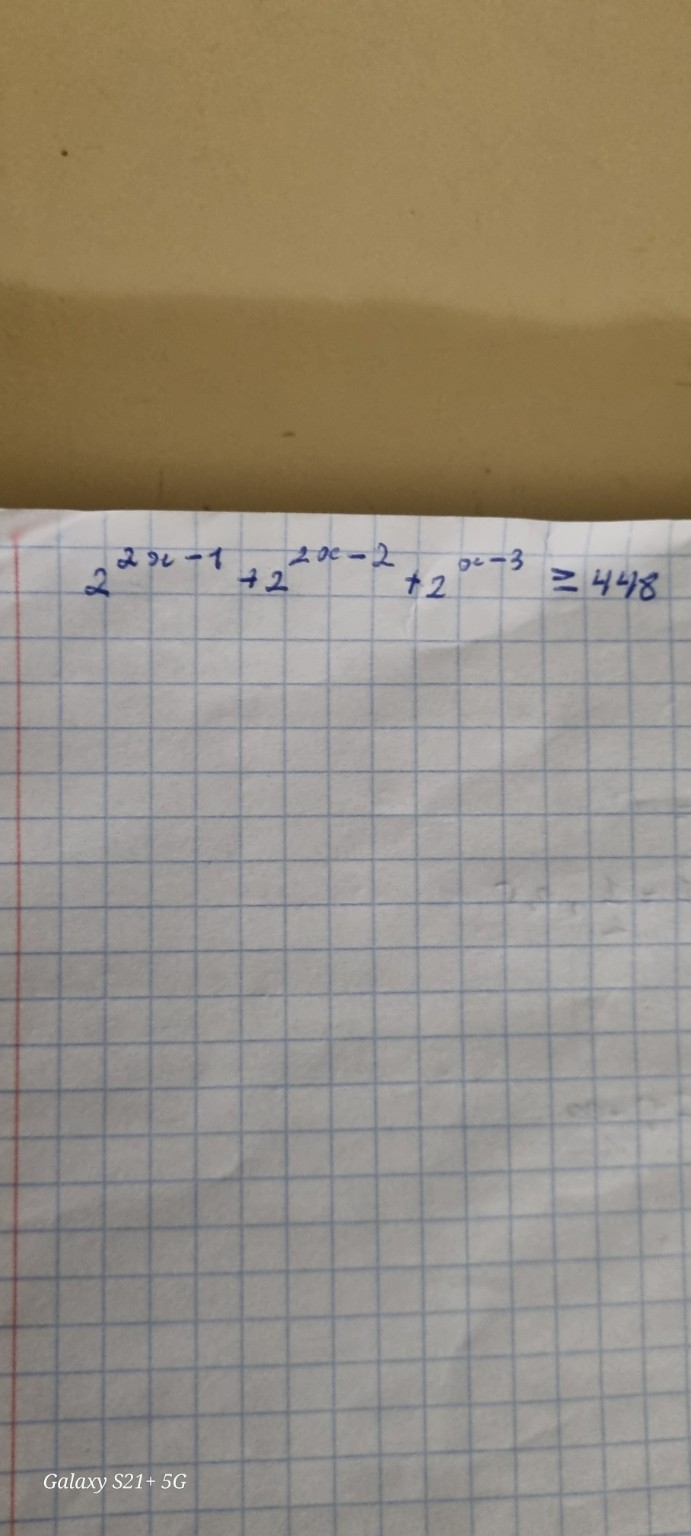 2^{2x-1} + 2^{2x-2} + 2^{x-3} ≥ 448
Galaxy S21+ 5G